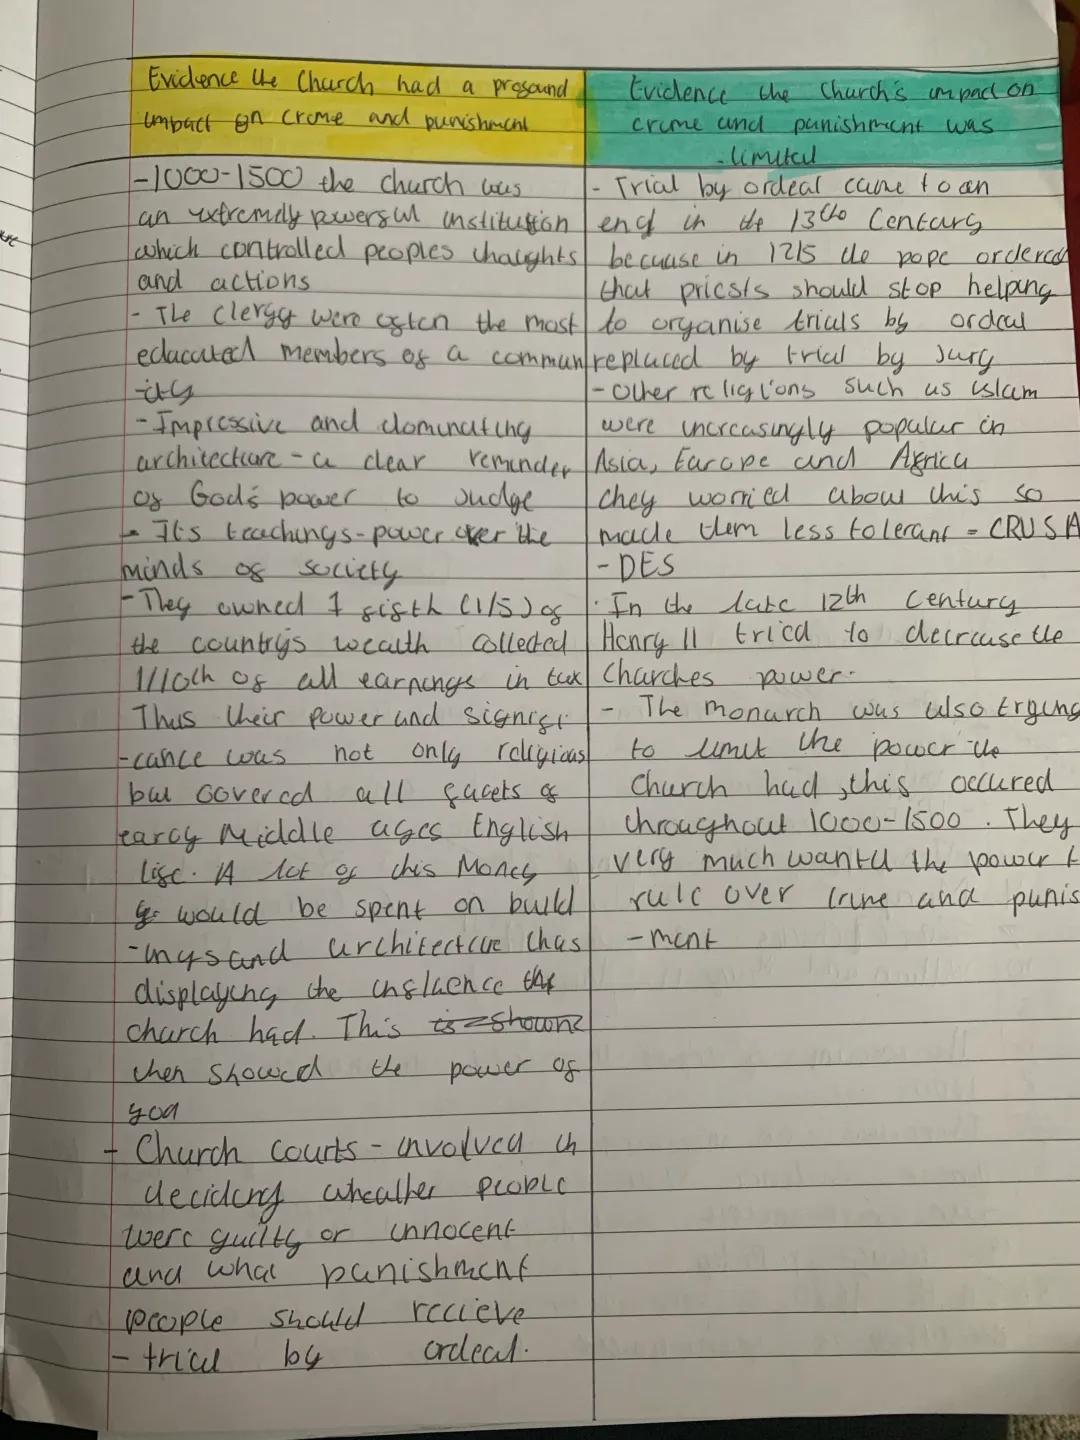 Evidence the Church had a profound
impact on crime and punishment
-1000-1500 the church was
an extremely powerful institution
which controlled peoples thoughts
and actions
- The clergy were often the most
educated members of a commun
-ity
- Impressive and dominating
architecture - a clear reminder
of God's power to judge
- It's teachings - power over the
minds of society
- They owned 1 fifth (1/5) of
the country's wealth collected
1/10th of all earnings in tax
Thus their power and signifi
-cance was not only religious
but covered all facets of
early Middle ages English
life. A lot of this Money
would be spent on build
-ings and architecture thus
displaying the influence the
church had. This is shown
then showed the power of
god
- Church courts - involved in
deciding wheather people
were guilty or innocent
and what punishment
people should recieve
- trial by ordeal.
Evidence the Church's impact on
crime and punishment was
- limited
- Trial by ordeal came to an
end in the 13th Century
because in 1215 the pope ordered
that priests should stop helping
to organise trials by ordeal
replaced by trial by jury
- Other religions such as islam
were increasingly popular in
Asia, Europe and Africa
they worried about this so
made them less tolerant = CRUSA
- DES
- In the late 12th Century
Henry II tried to decrease the
Churches power.
- The monarch was also trying
to limit the power the
Church had, this occured
throughout 1000-1500. They
very much wanted the power t
rule over crime and punis
-ment